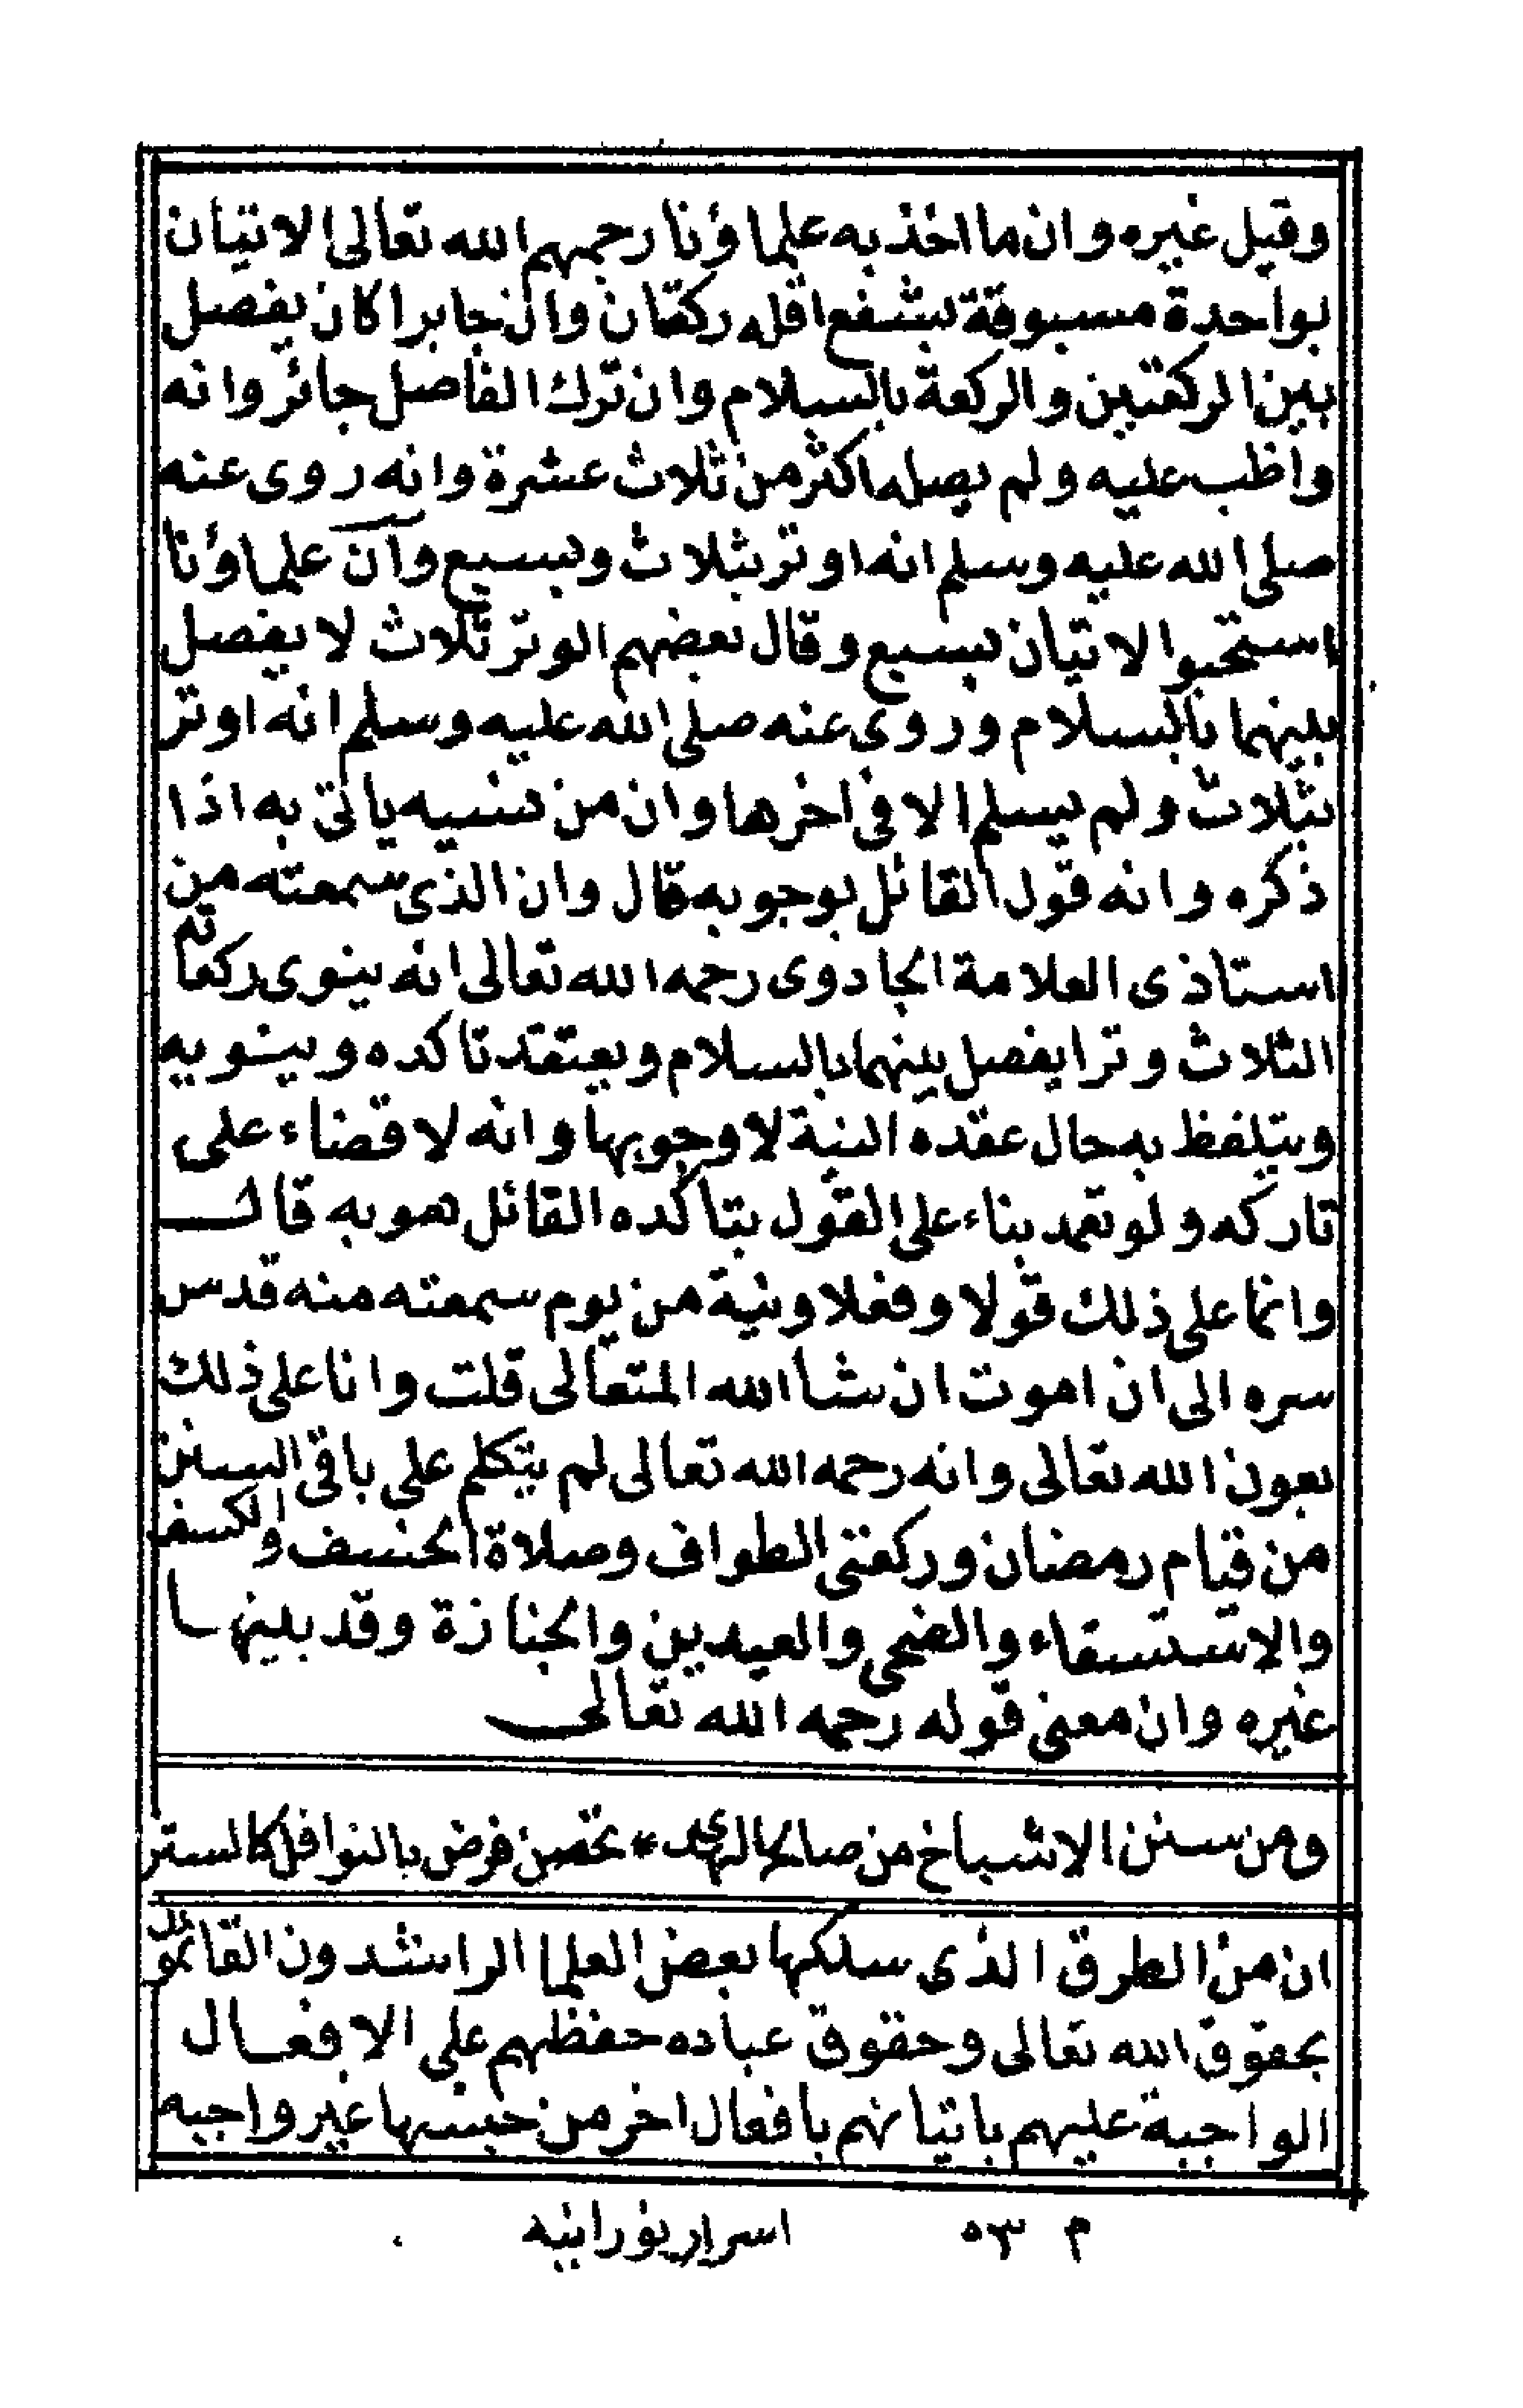 وقيل غيره وان ما اخذ به علماؤنا رحمهم الله تعالى الاتيان
بواحدة مسبوقة بشفع اقله ركعتان وان جابرا كان يفصل
بين الركعتين والركعة بالسلام وان ترك الفاصل جائز وانه
واظب عليه ولم يصله اكثر من ثلاث عشرة وانه روى عنه
صلى الله عليه وسلم انه اوتر بثلاث وبسبع وان علماؤنا
استحبوا الاتيان بسبع وقال بعضهم الوتر ثلاث لا يفصل
بينهما بالسلام وروى عنه صلى الله عليه وسلم انه اوتر
بثلاث ولم يسلم الا في اخرها وان من نسيه ياتي به اذا
ذكره وانه قول القائل بوجوبه قال وان الذى سمعته من
استاذى العلامة الجادوى رحمه الله تعالى انه ينوى ركعاتم
الثلاث وترا يفصل بينهما بالسلام ويعتقد تاكده وينويه
ويتلفظ به حال عقده النية لا وجوبها وانه لا قضاء على
تاركه ولو تعمد بناء على القول بتاكده القائل هو به قال
وانما على ذلك قولا وفعلا ونية من يوم سمعته منه قدس
سره الى ان اموت ان شا الله المتعالى قلت وانا على ذلك
بعون الله تعالى وانه رحمه الله تعالى لم يتكلم على باقى السنن
من قيام رمضان وركعتى الطواف وصلاة الخسف والكسف
والاستسقاء والضحى والعيدين والجنازة وقد بينها
غيره وان معنى قوله رحمه الله تعالى
ومن سنن الاشياخ من صالحى الهدى * تحصين فرض بالنوافل كالستر
ان من الطرق الذى سلكها بعض العلما الراشدون القائمون
بحقوق الله تعالى وحقوق عباده حفظهم على الافعال
الواجبة عليهم باتيانهم بافعال اخر من جنسها غير واجبه
م ٥٣ اسرار نورانيه